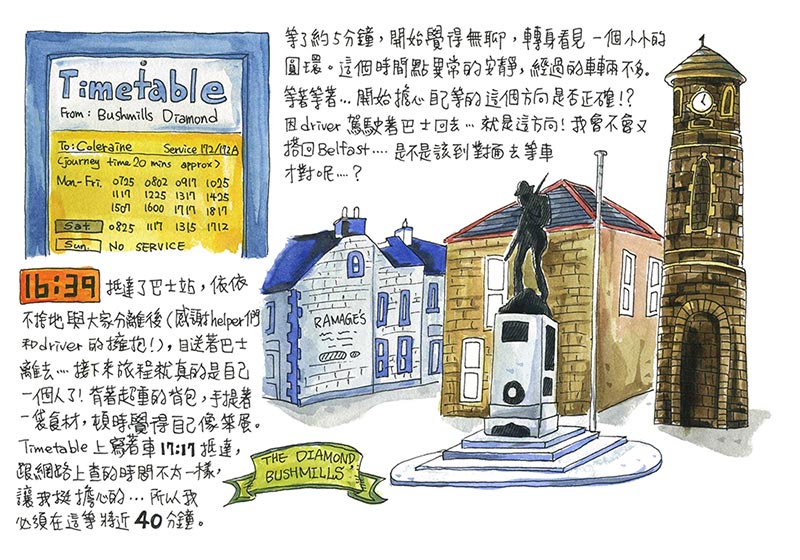 Timetable
From: Bushmills Diamond
To: Coleraine Service 172/172A
(journey time 20 mins approx)
Mon-Fri. 0725 0802 0917 1025
1117 1225 1317 1425
1507 1600 1717 1817
Sat 0825 1117 1315 1712
Sun. NO SERVICE
等了約5分鐘，開始覺得無聊，轉身看見一個小小的
圓環。這個時間點異常的安靜，經過的車輛不多。
等著等著…開始擔心自己等的這個方向是否正確!?
因driver駕駛著巴士回去…就是這方向!我會不會又
搭回Belfast....是不是該到對面去等車
才對呢....?
16:39 抵達了巴士站，依依
不捨地與大家分離後(感謝helper們
和driver的擁抱!)，目送著巴士
離去…接下來旅程就真的是自己
一個人了!背著超重的背包，手提著
一袋食材，頓時覺得自己像笨屋。
Timetable上寫著車17:17抵達，
跟網路上查的時間不太一樣，
讓我挺擔心的…所以我
必須在這等將近40分鐘。
RAMAGE'S
THE DIAMOND
BUSHMILLS